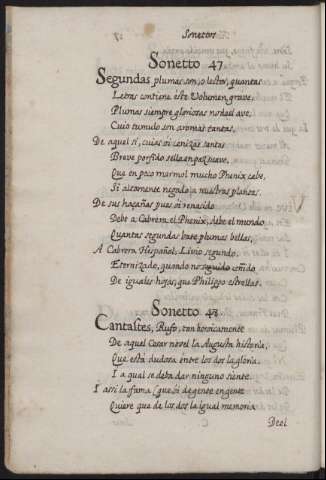 Sonetos
Sonetto 47
Segundas plumas son, o lector, quantas
Letras contiene este Volumen grave,
Plumas siempre gloriosas no del ave,
Cuio tumulo son aromas tantas,
De aquel si, cuias oi cenizas santas
Breve porfido sella en paz suave,
Que en poco marmol mucho Phenix cabe,
Si altamente negado a nuestras plantas.
De sus hazañas pues oi renacido
Debe a Cabrera el Phenix, debe el mundo
Quantas segundas bate plumas bellas,
A Cabrera Hespañol, Livio segundo,
Eternizado, quando no seguido ceñido
De iguales hojas, que Philippo estrellas.
Sonetto 48
Cantastes, Rufo, tan heroicamente
De aquel Cesar novel la Augusta historia,
Que está dudosa entre los dos la gloria,
I a qual se deba dar ninguno siente.
I assi la fama, que oi de gente en gente
Quiere que de los dos la igual memoria
Deel